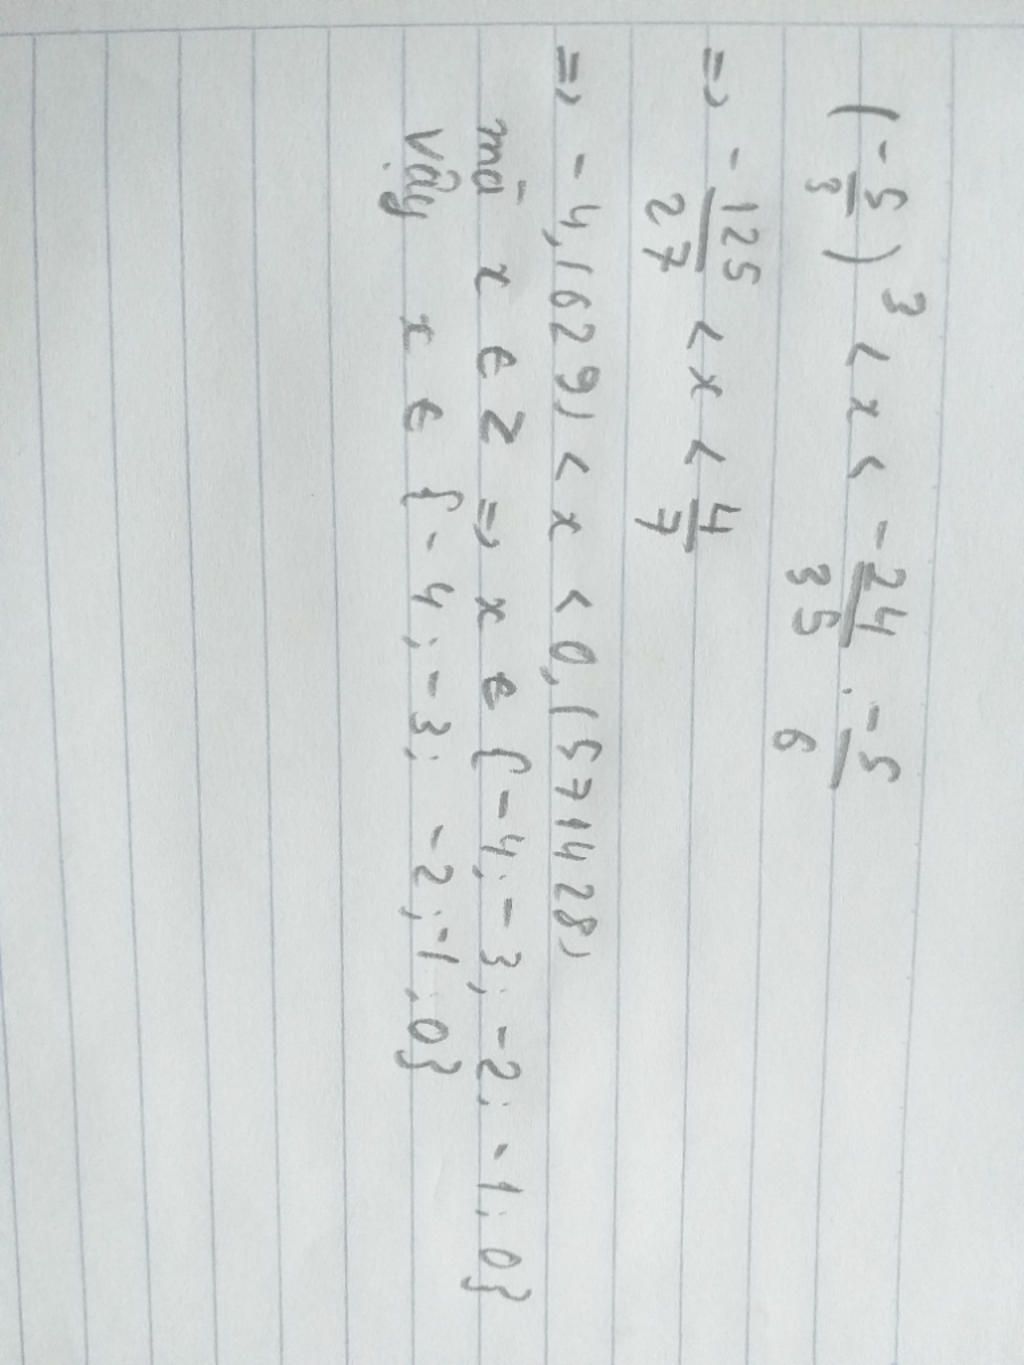 (-5/3)³ < x < -24/35 . -5/6
=> -125/27 < x < 4/7
=> -4,(629) < x < 0,(571428)
mà x ∈ Z => x ∈ {-4; -3; -2; -1; 0}
Vậy x ∈ {-4; -3; -2; -1; 0}